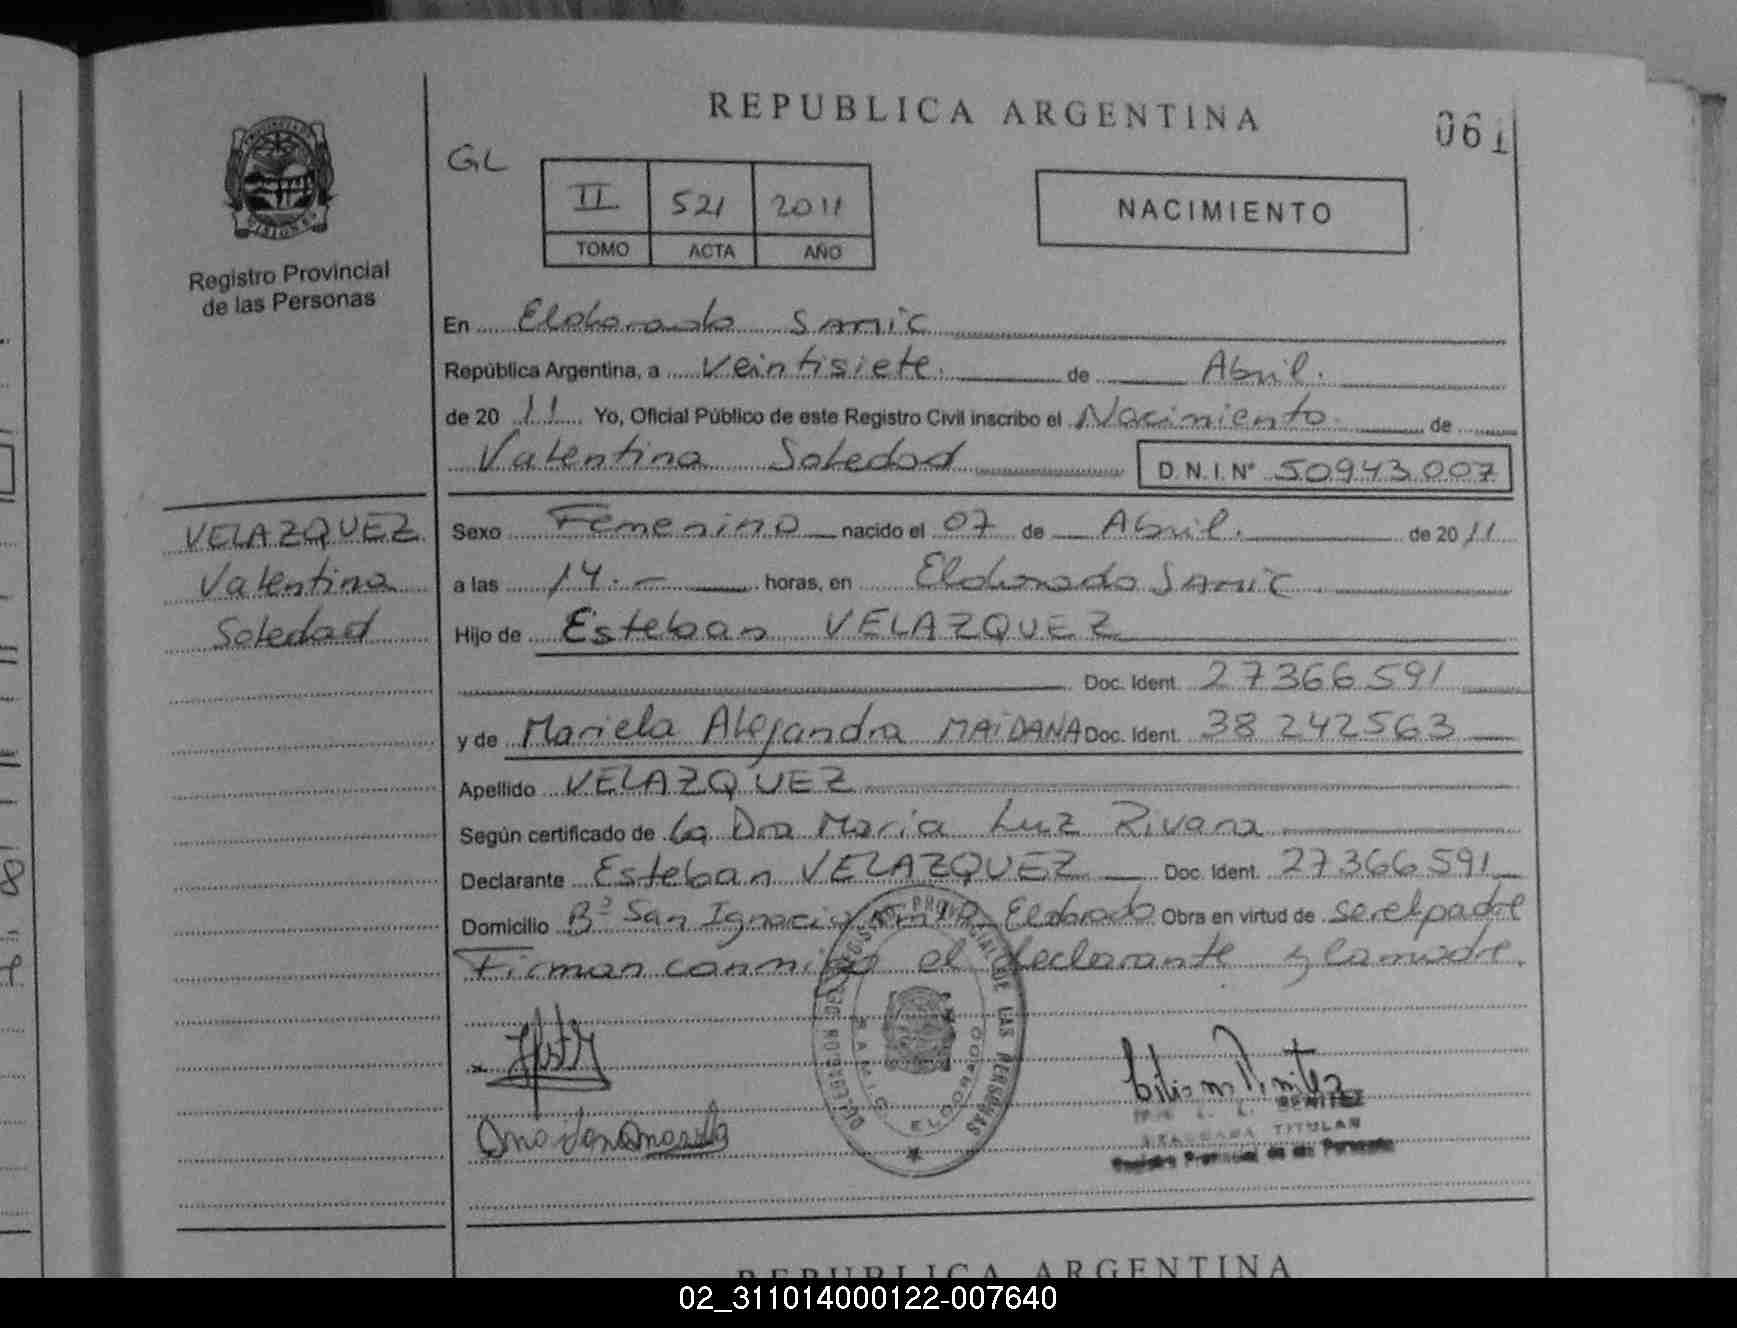 REPUBLICA ARGENTINA
061
GL
II 521 2011
TOMO ACTA AÑO
NACIMIENTO
PROVINCIA DE MISIONES
Registro Provincial
de las Personas
En Eldorado SAMIC
República Argentina, a veintisiete. de Abril.
de 2011 Yo, Oficial Público de este Registro Civil inscribo el Nacimiento de
Valentina Soledad D.N.I. Nº 50943.007
VELAZQUEZ
Valentina
Soledad
Sexo Femenino nacido el 07 de Abril. de 2011
a las 14.- horas, en Eldorado SAMIC
Hijo de Esteban VELAZQUEZ
Doc. Ident. 27366591
y de Mariela Alejandra MAIDANA Doc. Ident. 38242563
Apellido VELAZQUEZ
Según certificado de la Dra Maria Luz Rivara
Declarante Esteban VELAZQUEZ Doc. Ident. 27366591
Domicilio Bº San Ignacio Eldorado Obra en virtud de ser el padre
Firman conmigo el declarante y la madre.
PROVINCIAL DE LAS PERSONAS
SAMIC ELDORADO
BENITEZ
TITULAR
Registro Provincial de las Personas
REPUBLICA ARGENTINA
02_311014000122-007640